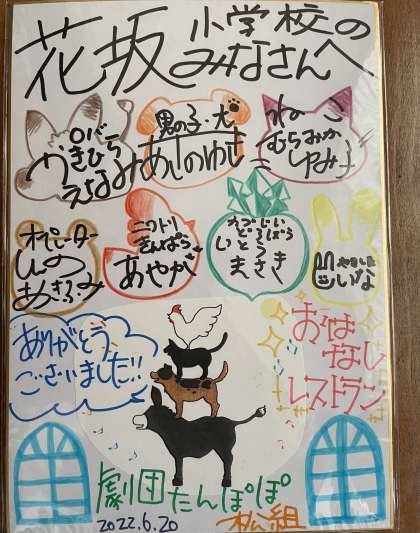 花坂小学校の
みなさんへ
ロバ
かきひら
えなみ
男の子・犬
あしのゆき
ねこ
むらみか
ゆみ子
オペレーター
ひの
あきふみ
ニワトリ
きんぱら
あやが
どろぼう
いとう
まさき
いな
ありがとう
ございました!!
おはなし
レストラン
劇団たんぽぽ
2022.6.20
松組